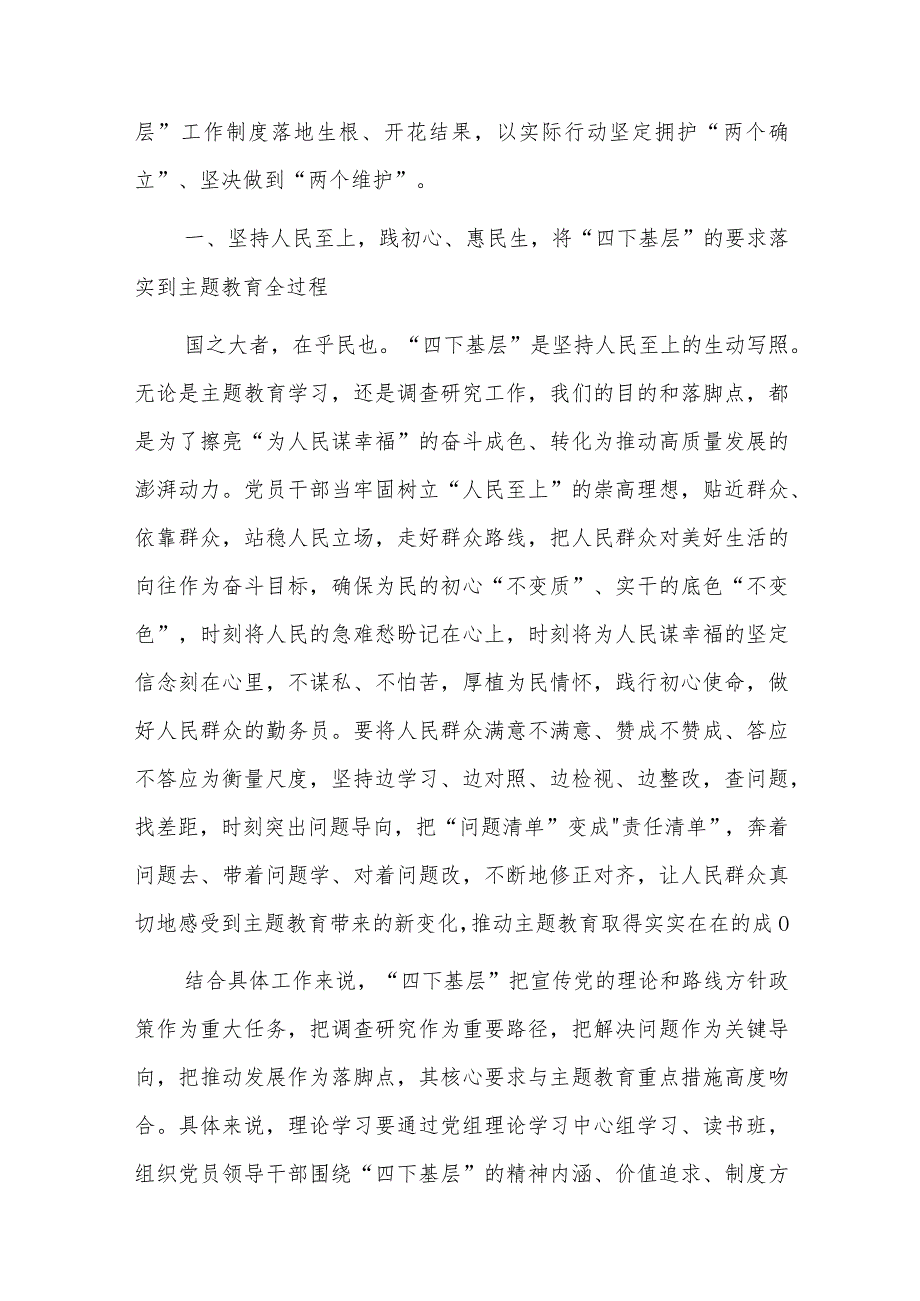 层”工作制度落地生根、开花结果，以实际行动坚定拥护“两个确
立”、坚决做到“两个维护”。
一、坚持人民至上，践初心、惠民生，将“四下基层”的要求落
实到主题教育全过程
国之大者，在乎民也。“四下基层”是坚持人民至上的生动写照。
无论是主题教育学习，还是调查研究工作，我们的目的和落脚点，都
是为了擦亮“为人民谋幸福”的奋斗成色、转化为推动高质量发展的
澎湃动力。党员干部当牢固树立“人民至上”的崇高理想，贴近群众、
依靠群众，站稳人民立场，走好群众路线，把人民群众对美好生活的
向往作为奋斗目标，确保为民的初心“不变质”、实干的底色“不变
色”，时刻将人民的急难愁盼记在心上，时刻将为人民谋幸福的坚定
信念刻在心里，不谋私、不怕苦，厚植为民情怀，践行初心使命，做
好人民群众的勤务员。要将人民群众满意不满意、赞成不赞成、答应
不答应为衡量尺度，坚持边学习、边对照、边检视、边整改，查问题，
找差距，时刻突出问题导向，把“问题清单”变成"责任清单”，奔着
问题去、带着问题学、对着问题改，不断地修正对齐，让人民群众真
切地感受到主题教育带来的新变化,推动主题教育取得实实在在的成0
结合具体工作来说，“四下基层”把宣传党的理论和路线方针政
策作为重大任务，把调查研究作为重要路径，把解决问题作为关键导
向，把推动发展作为落脚点，其核心要求与主题教育重点措施高度吻
合。具体来说，理论学习要通过党组理论学习中心组学习、读书班，
组织党员领导干部围绕“四下基层”的精神内涵、价值追求、制度方